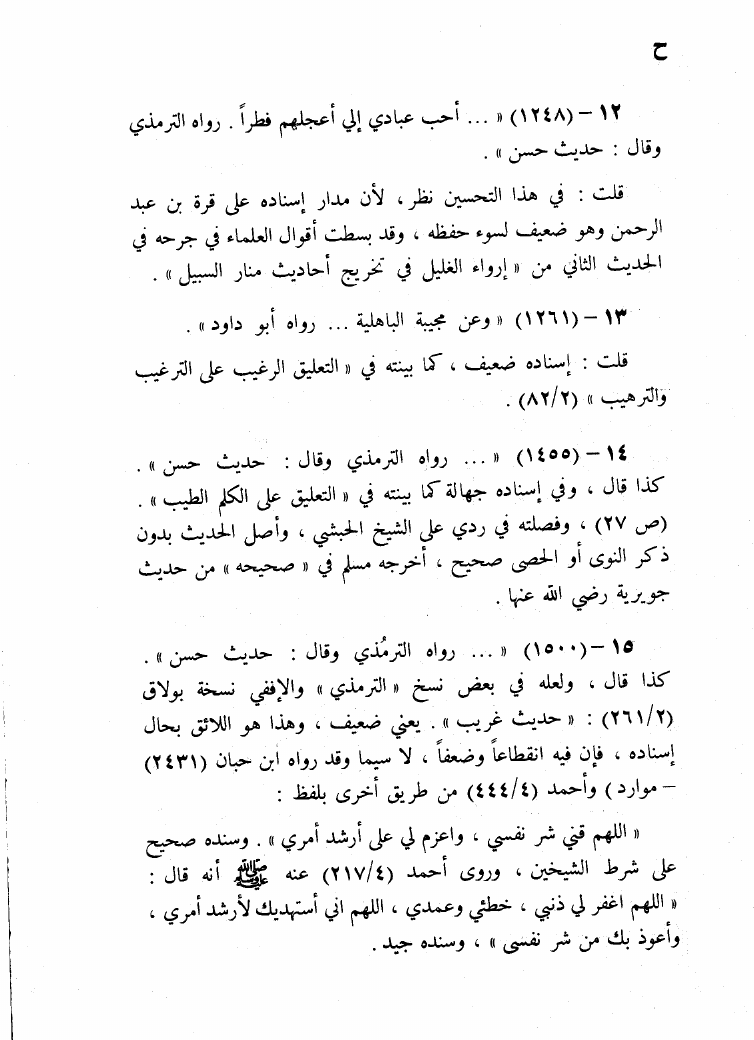 ح
١٢ – (١٢٤٨) « ... أحب عبادي إلي أعجلهم فطراً . رواه الترمذي
وقال : حديث حسن » .
قلت : في هذا التحسين نظر ، لأن مدار إسناده على قرة بن عبد
الرحمن وهو ضعيف لسوء حفظه ، وقد بسطت أقوال العلماء في جرحه في
الحديث الثاني من « إرواء الغليل في تخريج أحاديث منار السبيل » .
١٣ – (١٢٦١) « وعن مجيبة الباهلية ... رواه أبو داود » .
قلت : إسناده ضعيف ، كما بينته في « التعليق الرغيب على الترغيب
والترهيب » (٨٢/٢) .
١٤ – (١٤٥٥) « ... رواه الترمذي وقال : حديث حسن » .
كذا قال ، وفي إسناده جهالة كما بينته في « التعليق على الكلم الطيب » .
(ص ٢٧) ، وفصلته في ردي على الشيخ الحبشي ، وأصل الحديث بدون
ذكر النوى أو الحصى صحيح ، أخرجه مسلم في « صحيحه » من حديث
جويرية رضي الله عنها .
١٥ – (١٥٠٠) « ... رواه الترمُذي وقال : حديث حسن » .
كذا قال ، ولعله في بعض نسخ « الترمذي » والإففي نسخة بولاق
(٢٦١/٢) : « حديث غريب » . يعني ضعيف ، وهذا هو اللائق بحال
إسناده ، فإن فيه انقطاعاً وضعفاً ، لا سيما وقد رواه ابن حبان (٢٤٣١)
– موارد) وأحمد (٤٤٤/٤) من طريق أخرى بلفظ :
« اللهم قني شر نفسي ، واعزم لي على أرشد أمري » . وسنده صحيح
على شرط الشيخين ، وروى أحمد (٢١٧/٤) عنه ﷺ أنه قال :
« اللهم اغفر لي ذنبي ، خطئي وعمدي ، اللهم اني أستهديك لأرشد أمري ،
وأعوذ بك من شر نفسي » ، وسنده جيد .